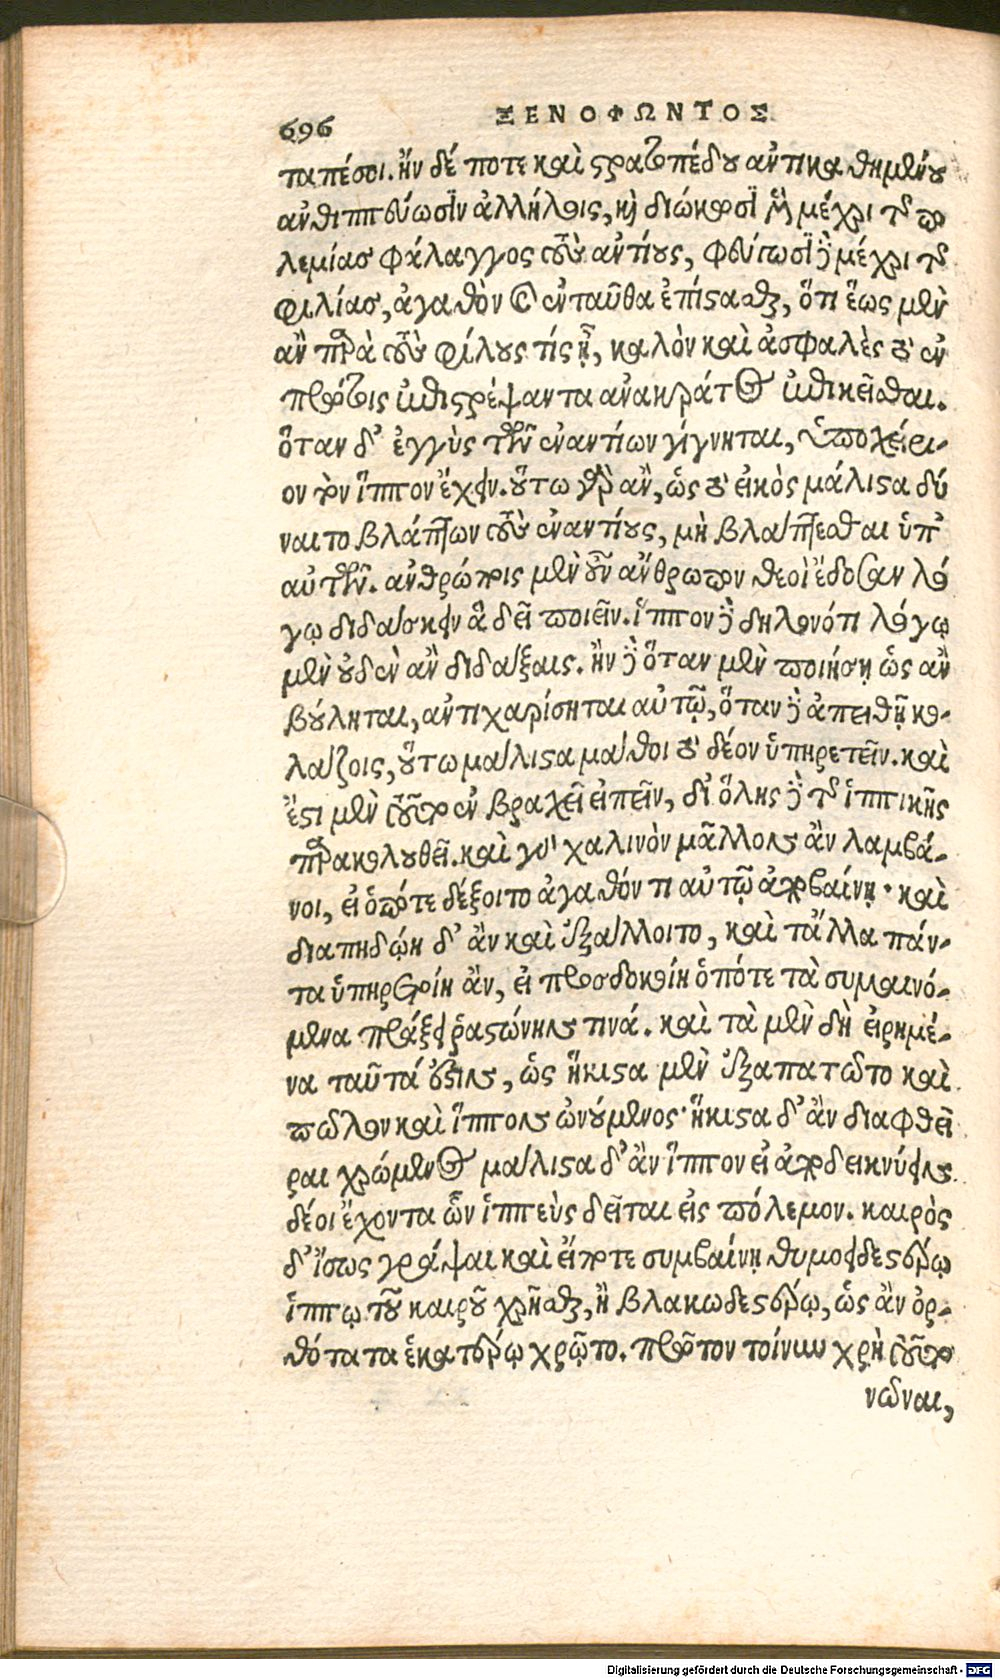 696 ΞΕΝΟΦΩΝΤΟΣ
ταπέσοι. ἢν δέ ποτε καὶ στρατοπέδου ἀντικαθημένου
ἀνθιππεύωσιν ἀλλήλοις, καὶ διώκωσι μὲν μέχρι τῆς πο
λεμίας φάλαγγος τοὺς ἀντίους, φεύγωσι δὲ μέχρι τῆς
φιλίας, ἀγαθὸν καὶ ἐνταῦθα ἐπίστασθαι, ὅτι ἕως μὲν
ἂν παρὰ τοὺς φίλους τίς ᾖ, καλὸν καὶ ἀσφαλὲς τὸ ἐν
πρώτοις ἐπιστρέψαντα ἀνακράτος ἐπικεῖσθαι.
ὅταν δ' ἐγγὺς τῶν ἐναντίων γίγνηται, ὑποχείρι-
ον τὸν ἵππον ἔχειν. οὕτω γὰρ ἂν, ὡς τὸ εἰκὸς μάλιστα δύ
ναιτο βλάπτων τοὺς ἐναντίους, μὴ βλάπτεσθαι ὑπ'
αὐτῶν. ἀνθρώποις μὲν οὖν ἄνθρωπον θεοὶ ἔδοσαν λό
γῳ διδάσκειν ἃ δεῖ ποιεῖν. ἵππον δὲ δηλονότι λόγῳ
μὲν οὐδὲν ἂν διδάξαις. ἢν δὲ ὅταν μὲν ποιήσῃ ὡς ἂν
βούληται, ἀντιχαρίσηται αὐτῷ, ὅταν δὲ ἀπειθῇ κο-
λάζοις, οὕτω μάλιστα μάθοι τὸ δέον ὑπηρετεῖν. καὶ
ἔστι μὲν τοῦτο ἐν βραχεῖ εἰπεῖν, δι' ὅλης δὲ τῆς ἱππικῆς
παρακολουθεῖ. καὶ γὰρ χαλινὸν μᾶλλον ἂν λαμβά-
νοι, εἰ ὁπότε δέξοιτο ἀγαθόν τι αὐτῷ ἀποβαίνῃ· καὶ
διαπηδῴη δ' ἂν καὶ ἐξάλλοιτο, καὶ τἄλλα πάν-
τα ὑπηρετοίη ἂν, εἰ προσδοκοίη ὁπότε τὰ συμαινό-
μενα πράξει ῥᾳστώνην τινά. καὶ τὰ μὲν δὴ εἰρημέ-
να ταῦτά ἐστιν, ὡς ἥκιστα μὲν ἐξαπατῷτο καὶ
πῶλον καὶ ἵππον ὠνούμενος· ἥκιστα δ' ἂν διαφθεί
ραι χρώμενος μάλιστα δ' ἂν ἵππον εἰ ἀποδεικνύειν
δέοι ἔχοντα ὧν ἱππεὺς δεῖται εἰς πόλεμον. καιρὸς
δ' ἴσως γράψαι καὶ εἴποτε συμβαίνῃ θυμοειδεστέρῳ
ἵππῳ τοῦ καιροῦ χρῆσθαι, ἢ βλακωδεστέρῳ, ὡς ἂν ὀρ-
θότατα ἑκατέρῳ χρῷτο. πρῶτον τοίνυν χρὴ τοῦτο
νῶναι,
Digitalisierung gefördert durch die Deutsche Forschungsgemeinschaft - DFG